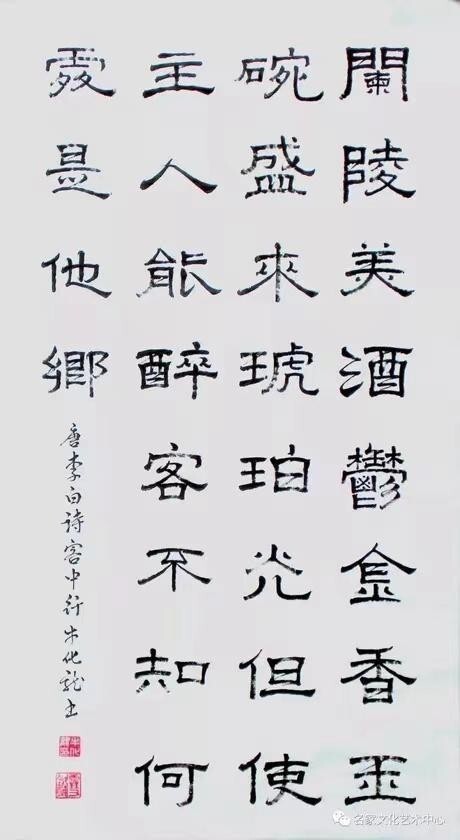 闌陵美酒鬱金香玉
碗盛來琥珀光但使
主人能醉客不知何
處是他鄉
唐李白诗客中行牛化龍书
名家文化艺术中心